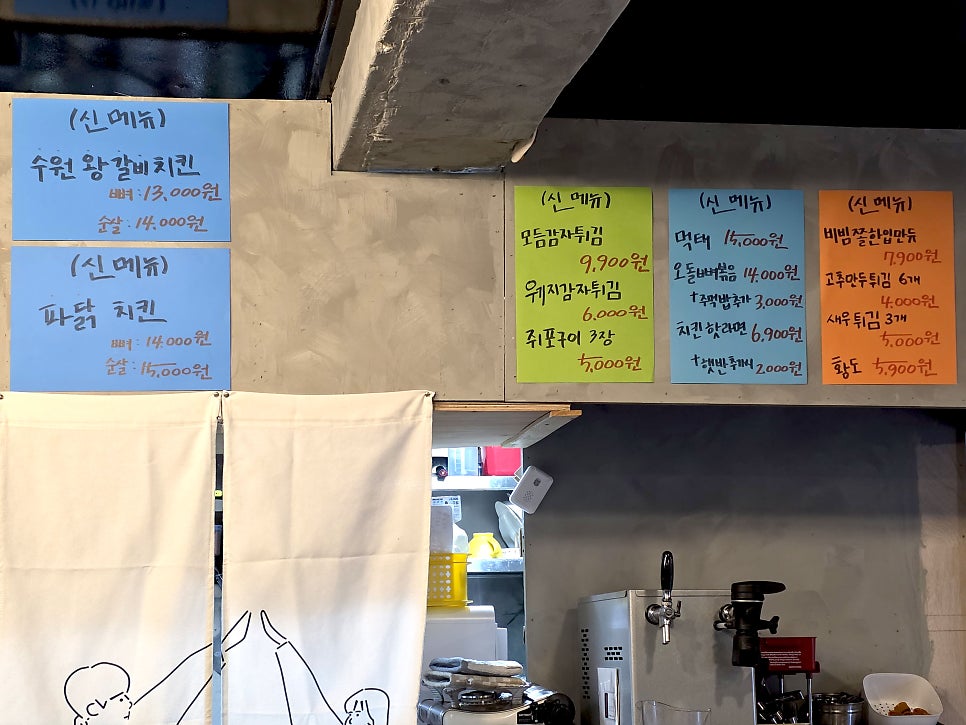 (신 메뉴)
수원 왕갈비치킨
뼈 : 13,000원
순살 : 14,000원
(신 메뉴)
파닭 치킨
뼈 : 14,000원
순살 : 15,000원
(신 메뉴)
모듬감자튀김
9,900원
웨지감자튀김
6,000원
쥐포구이 3장
5,000원
(신 메뉴)
먹태 15,000원
오돌뼈볶음 14,000원
+주먹밥추가 3,000원
치킨 핫라면 6,900원
+햇반추가시 2,000원
(신 메뉴)
비빔쫄한입만듀
7,900원
고추만두튀김 6개
4,000원
새우튀김 3개
5,000원
황도 5,900원